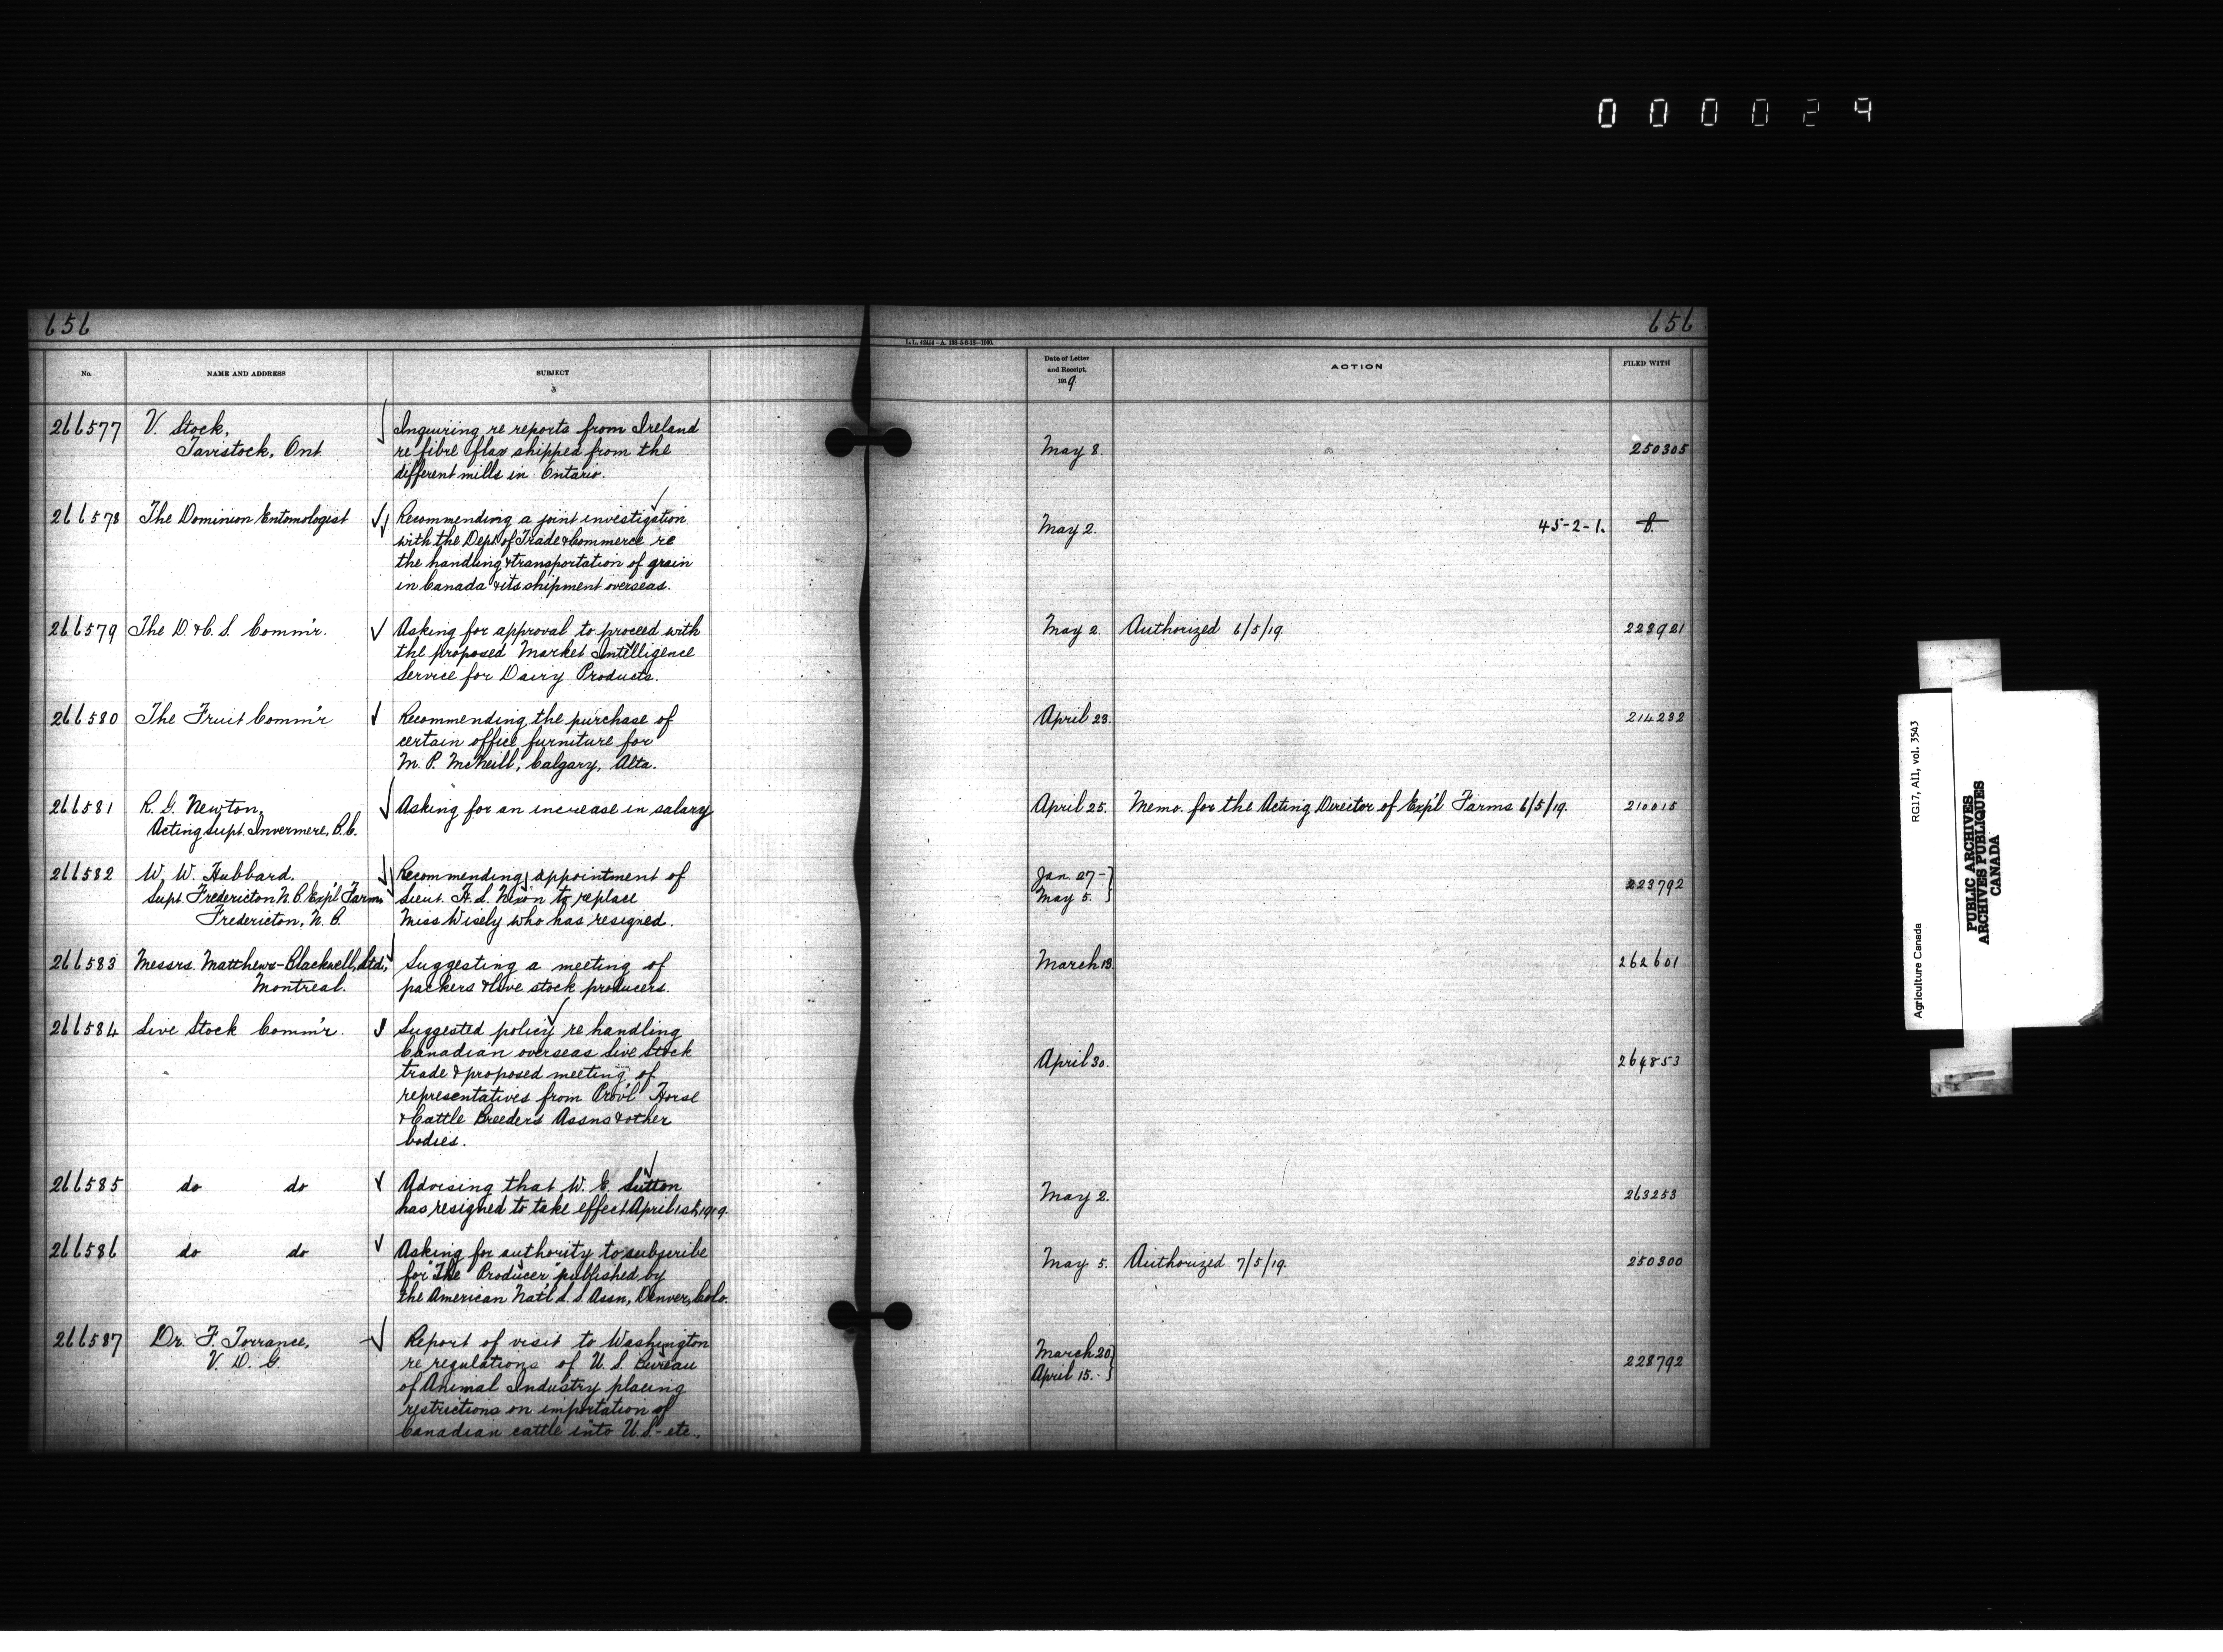 000029
656
656
L. L. 424/4-A. 120-3-6-18-3000.
No.
NAME AND ADDRESS
SUBJECT
Date of Letter
and Receipt,
1919.
ACTION
FILED WITH
266577
V. Stock,
Tavistock, Ont.
Inquiring re reports from Ireland
re fibre flax shipped from the
different mills in Ontario.
May 8.
250305
266578
The Dominion Entomologist
Recommending a joint investigation
with the Dept. of Trade & Commerce re
the handling & transportation of grain
in Canada & its shipment overseas.
May 2.
45-2-1.
266579
The D. & C. S. Comm'r.
Asking for approval to proceed with
the proposed Market Intelligence
Service for Dairy Products.
May 2.
Authorized 6/5/19.
223921
266580
The Fruit Comm'r
Recommending the purchase of
certain office furniture for
M. P. McNeill, Calgary, Alta.
April 23.
214232
266581
R. G. Newton,
Acting Supt. Invermere, B.C.
Asking for an increase in salary
April 25.
Memo. for the Acting Director of Exp'l Farms 6/5/19.
210015
266582
W. W. Hubbard.
Supt. Fredericton N. B. Exp'l Farms
Fredericton, N. B.
Recommending appointment of
Lieut. H. S. Nixon to replace
Miss Wisely who has resigned.
Jan. 27-
May 5.
223792
266583
Messrs. Matthews-Blackwell, Ltd.,
Montreal.
Suggesting a meeting of
packers & live stock producers.
March 18.
262601
266584
Live Stock Comm'r.
Suggested policy re handling
Canadian overseas Live Stock
trade & proposed meeting of
representatives from Prov'l Horse
& Cattle Breeders Assns & other
bodies.
April 30.
264853
266585
do do
Advising that W. E. Sutton
has resigned to take effect April 1st, 1919.
May 2.
263253
266586
do do
Asking for authority to subscribe
for "The Producer" published by
the American Nat'l L. S. Assn, Denver, Colo.
May 5.
Authorized 7/5/19.
250300
266587
Dr. F. Torrance,
V. D. G.
Report of visit to Washington
re regulations of U. S. Bureau
of Animal Industry placing
restrictions on importation of
Canadian cattle into U.S.-etc.,
March 20
April 15.
228792
Agriculture Canada
RG17, A11, vol. 3543
PUBLIC ARCHIVES
ARCHIVES PUBLIQUES
CANADA